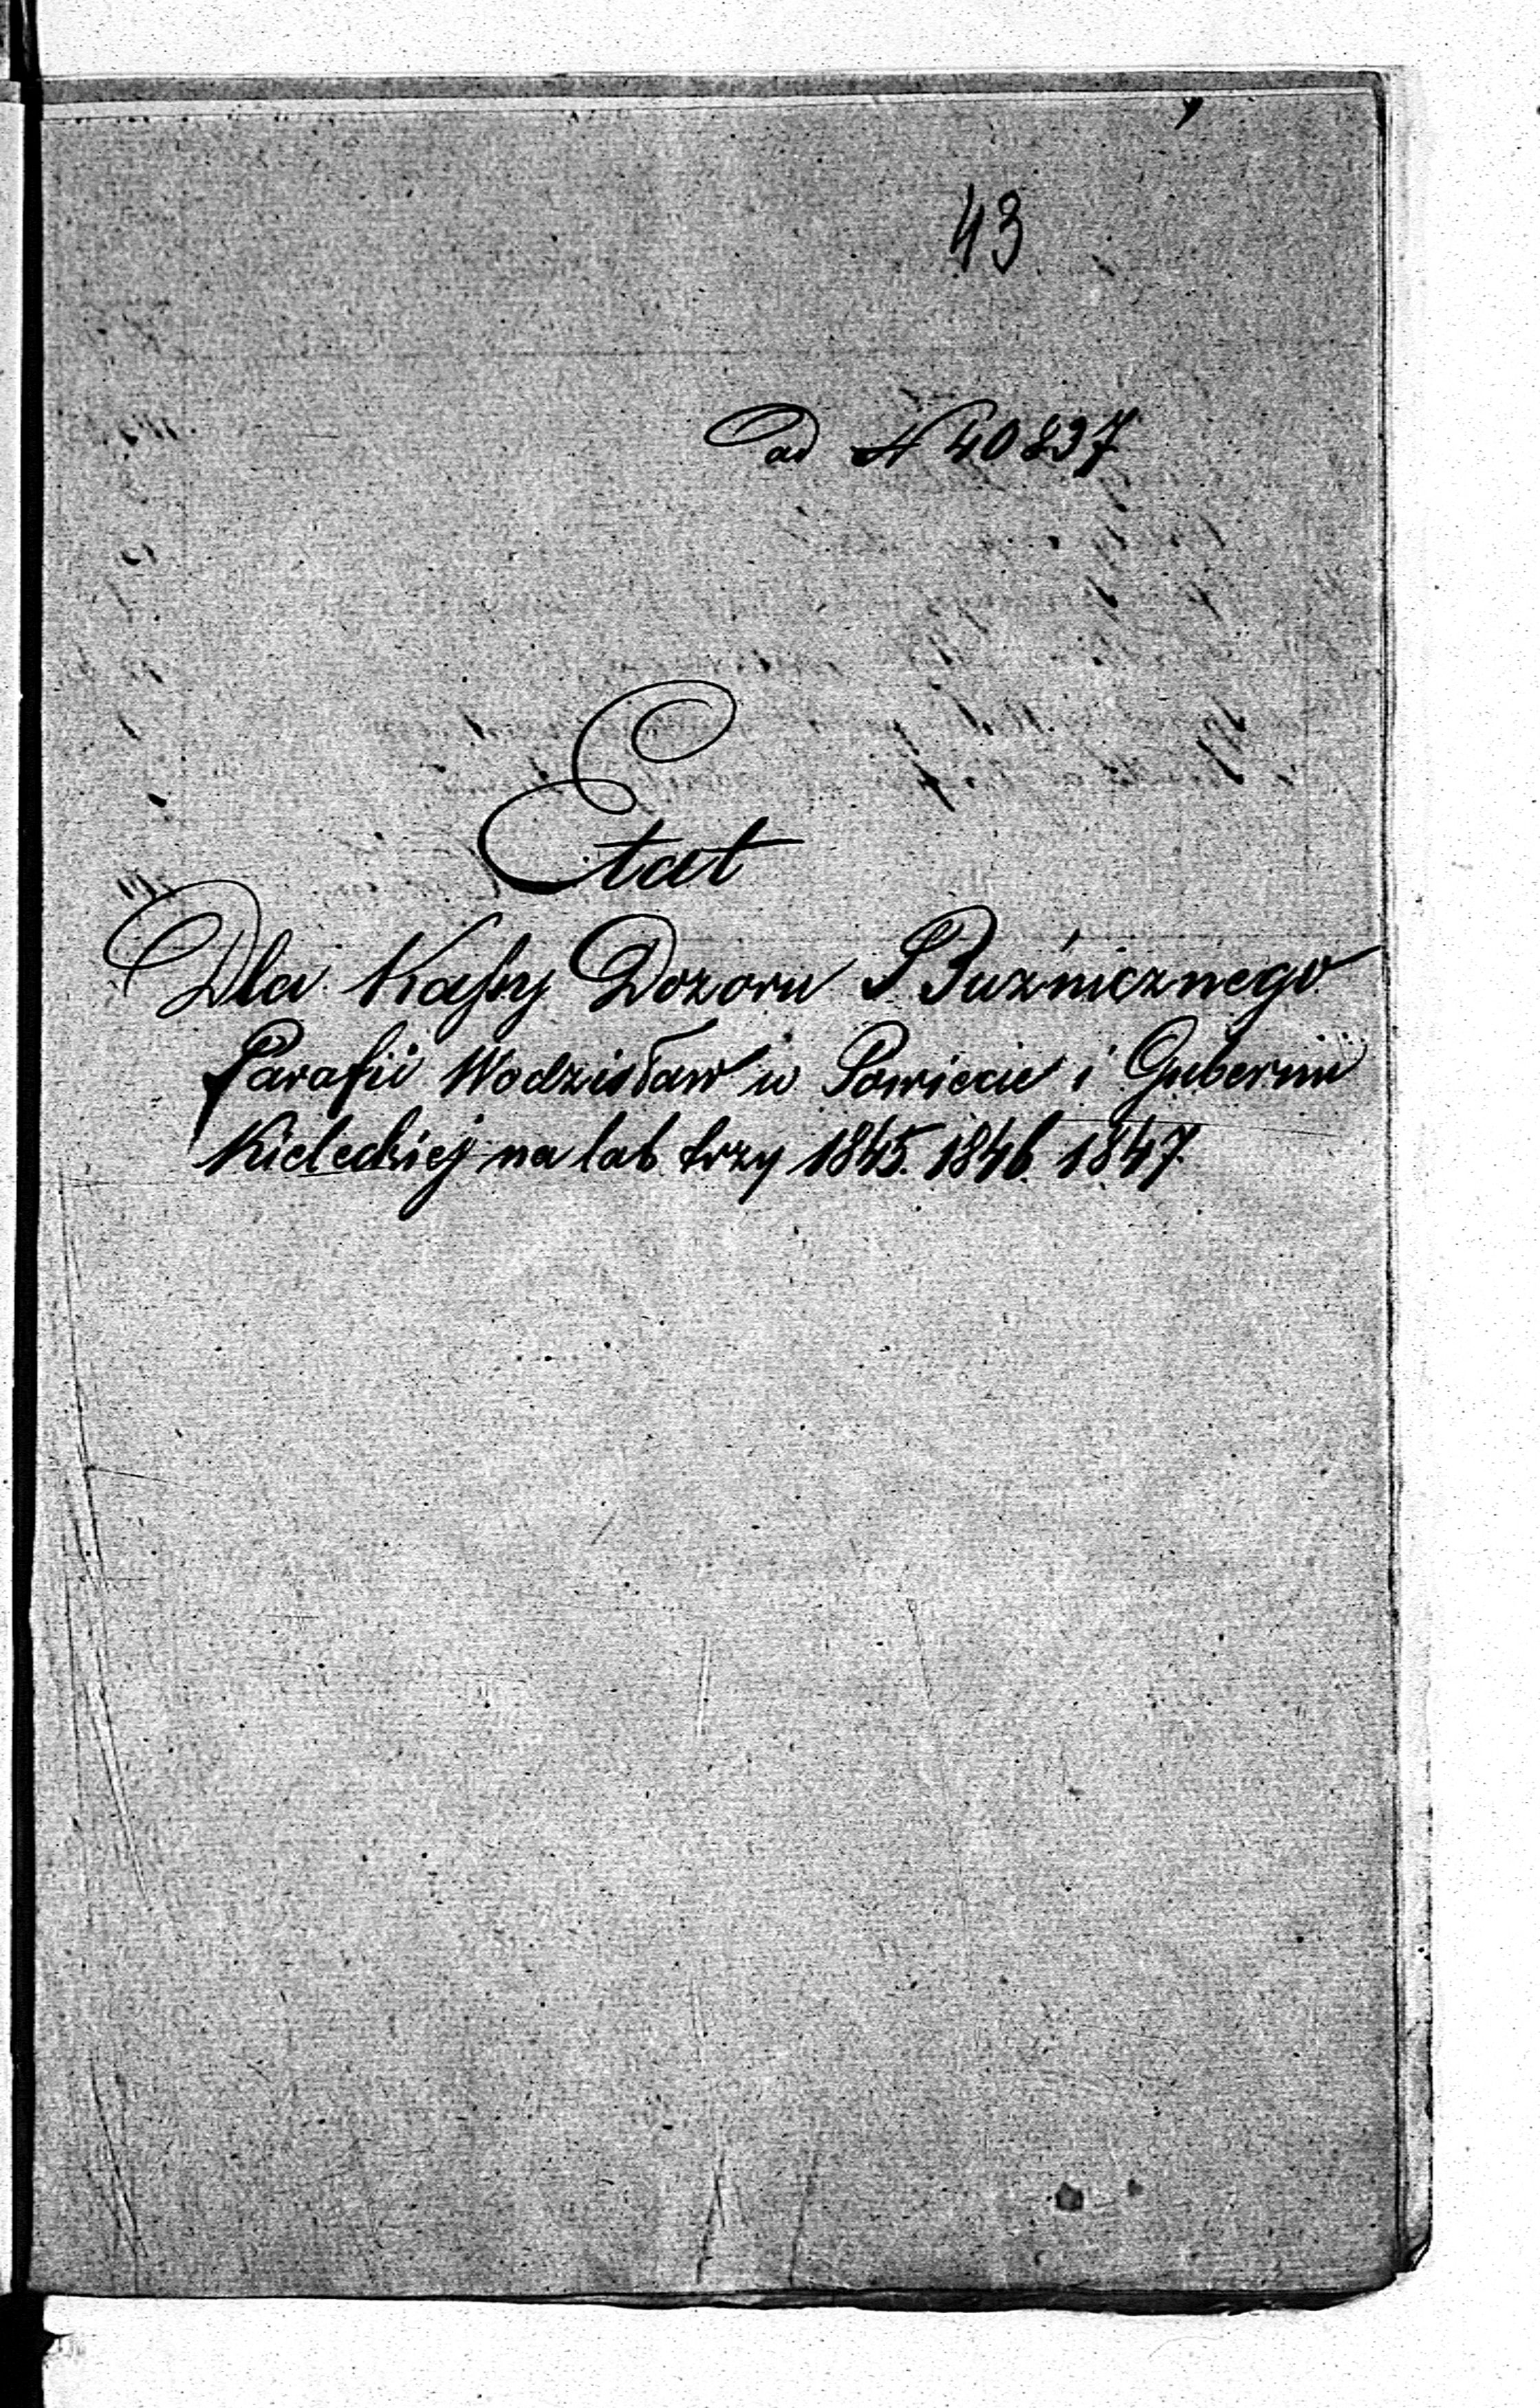 43
ad N 40837
Etat
Dla Kassy Dozoru Bużnicznego
Parafii Wodzisław w Powiecie i Gubernii
Kieleckiej na lat trzy 1845. 1846. 1847.